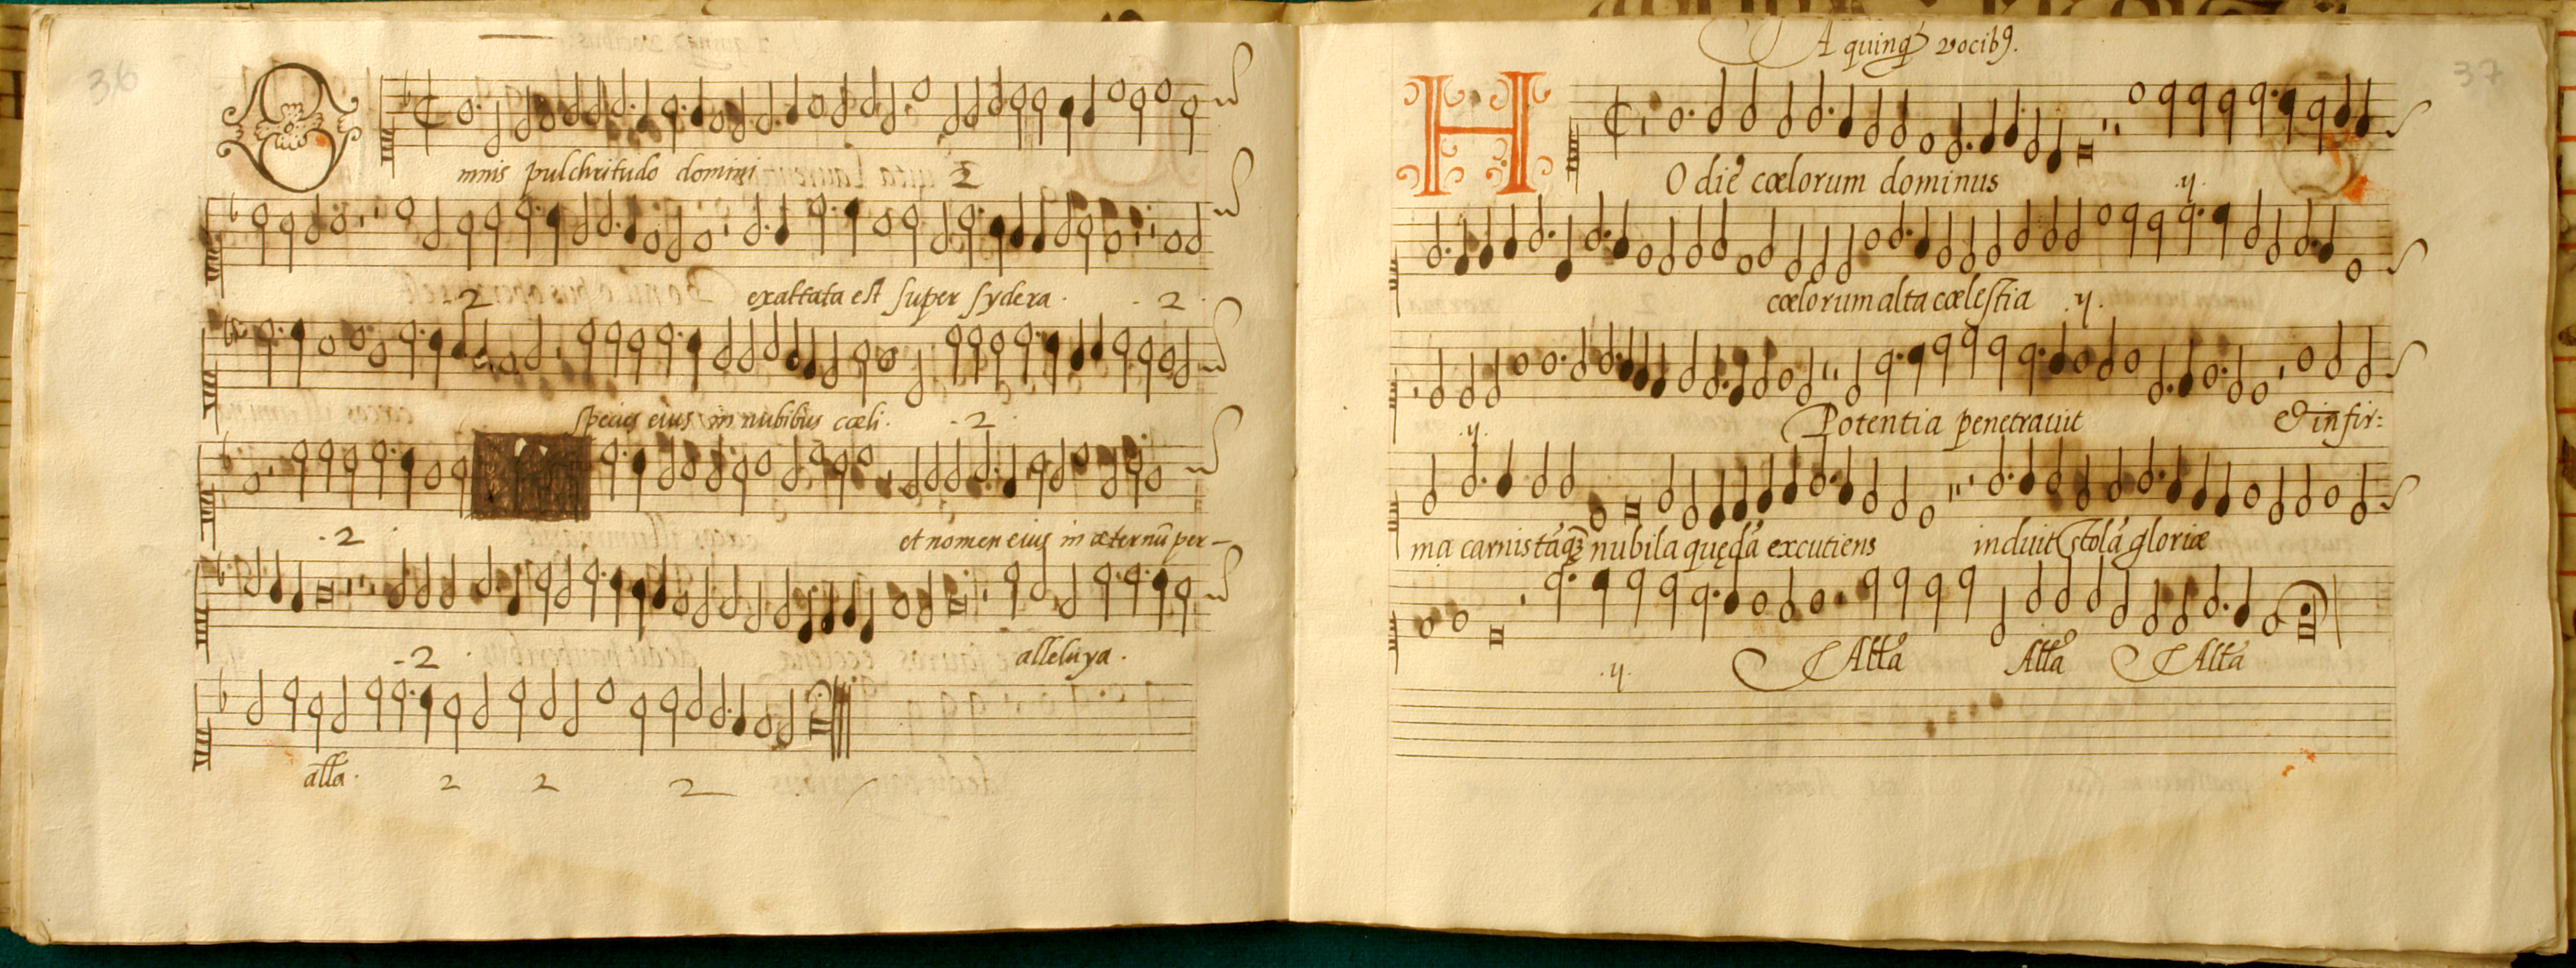 36
Omnis pulchritudo domini 2
2 exaltata est super sydera. .2.
species eius in nubibus cœli. .2.
.2. et nomen eius in æternū per-
.2. alleluya.
alla. 2 2 2
37
A quinq vocib9.
HOdie cœlorum dominus .ij.
cœlorum alta cœlestia .ij.
.ij. Potentia penetravit et infir:
ma carnis tāq3 nubila quędā excutiens induit stolā gloriæ
.ij. Alla Alla Alla